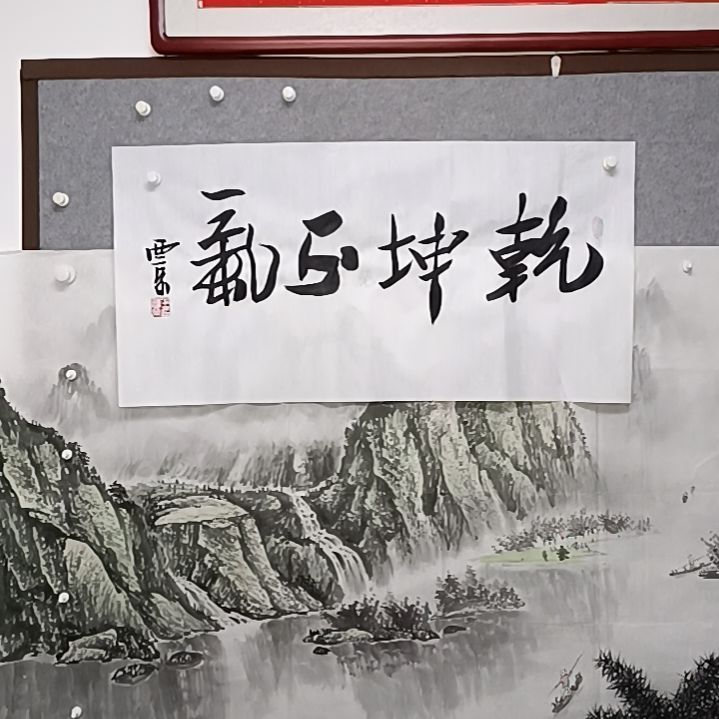 乾坤正氣